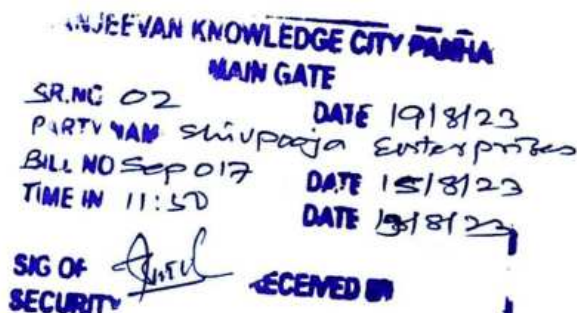 ANJEEVAN KNOWLEDGE CITY PANHA
MAIN GATE
SR.NO 02 DATE 19/8/23
PARTY NAM Shivpooja Enterprises
BILL NO Sep 017 DATE 15/8/23
TIME IN 11:50 DATE /8/23
SIG OF
SECURITY ECEIVED BY